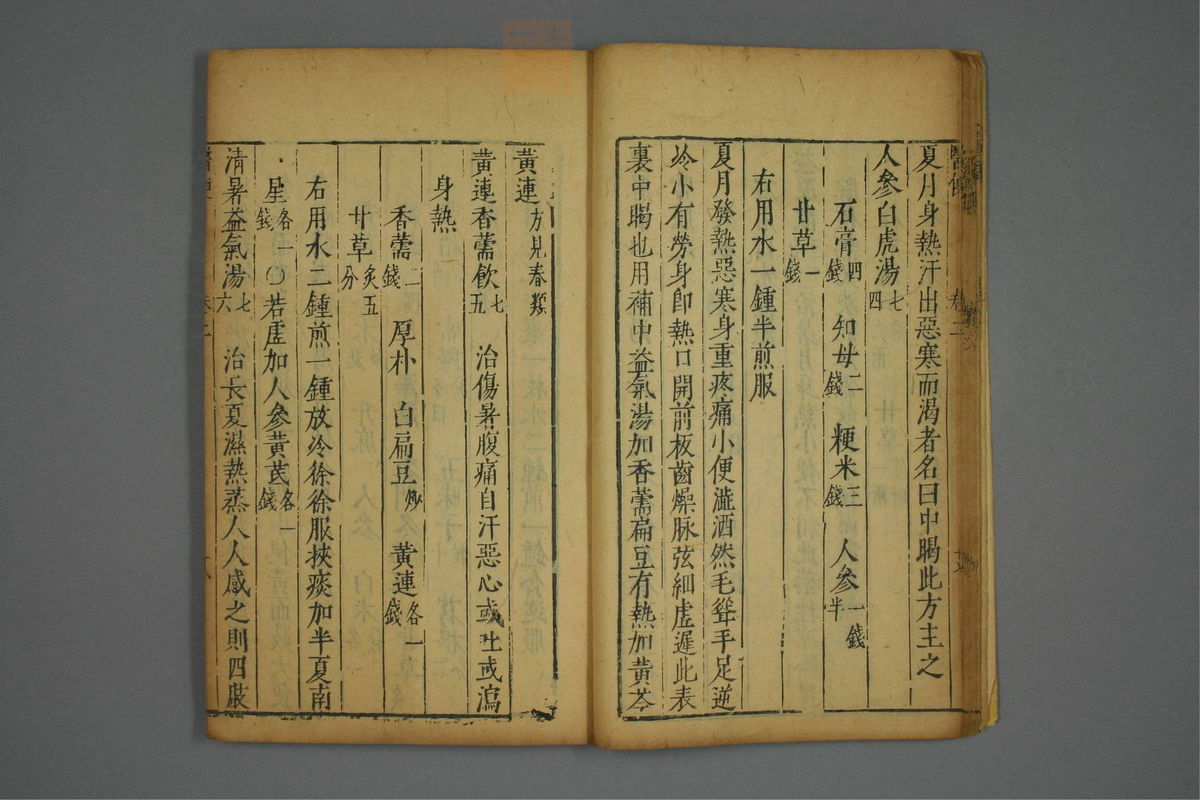 夏月身熱汗出惡寒而渴者名曰中暍此方主之
人參白虎湯七四
石膏四錢 知母二錢 粳米三錢 人參一錢半
甘草一錢
右用水一鍾半煎服
夏月發熱惡寒身重疼痛小便澁洒然毛聳手足逆
冷小有勞身即熱口開前板齒燥脉弦細虛遲此表
裏中暍也用補中益氣湯加香薷扁豆有熱加黃芩
黃連方見春類
黃連香薷飲七五 治傷暑腹痛自汗惡心或吐或瀉
身熱
香薷二錢 厚朴 白扁豆炒 黃連各一錢
甘草炙五分
右用水二鍾煎一鍾放冷徐徐服挾痰加半夏南
星各一錢〇若虛加人參黃芪各一錢
清暑益氣湯七六 治長夏濕熱蒸人人感之則四肢